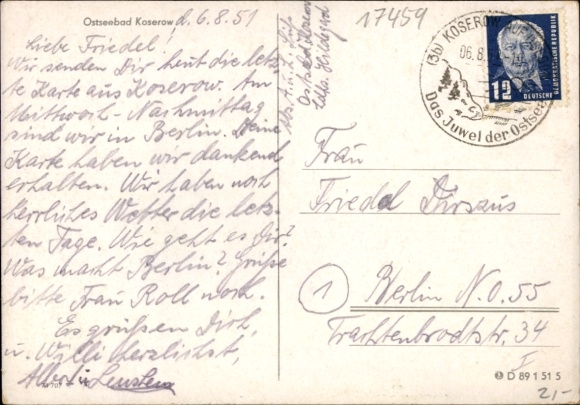 Ostseebad Koserow d. 6.8.51
Liebe Friedel!
Wir senden Dir heut die letz-
te Karte aus Koserow. Am
Mittwoch-Nachmittag
sind wir in Berlin. Deine
Karte haben wir dankend
erhalten. Wir haben noch
herrliches Wetter die letz-
ten Tage. Wie geht es Dir?
Was macht Berlin? Grüße
bitte Frau Roll noch.
Es grüßen Dich,
u. Willi herzlichst,
Abs. A.
Ostseebad Koserow
17459
(3b) KOSEROW
06.8.
Das Juwel der Ostsee
12
DEUTSCHE
DEMOKRATISCHE REPUBLIK
Frau
Friedel Dirszus
1
Berlin N.O. 55
Trachtenbrodtstr. 34
I
D 89 1 51 5
2,-